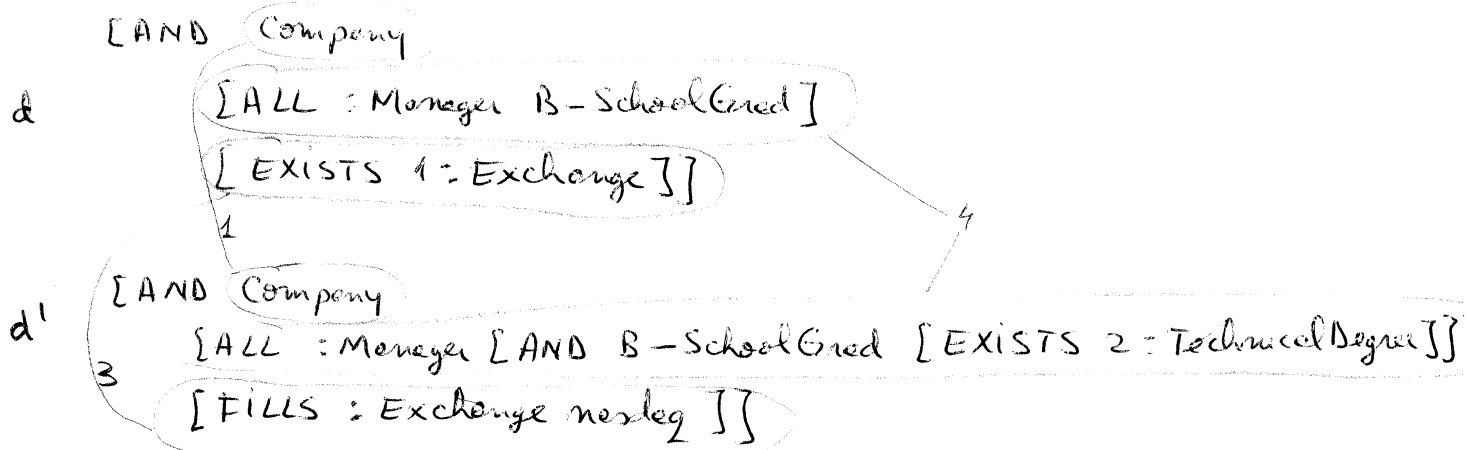 [AND Company
d [ALL : Manager B-SchoolGrad]
[EXISTS 1 : Exchange]]
1
4
[AND Company
d' [ALL : Manager [AND B-SchoolGrad [EXISTS 2 : TechnicalDegree]]
3
[FILLS : Exchange nasdaq]]